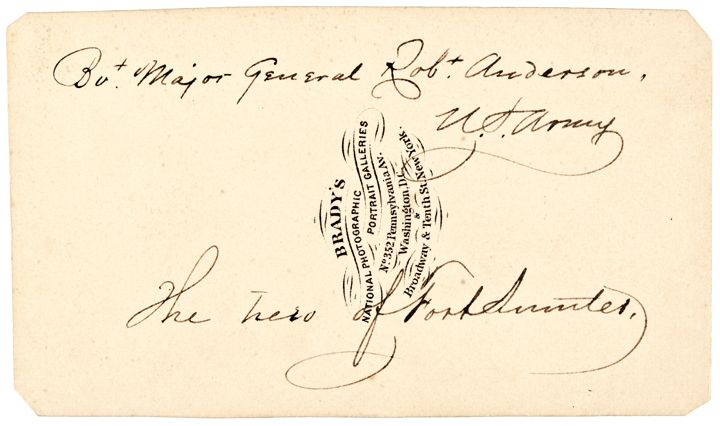 Bvt. Major General Robt. Anderson,
U.S. Army
BRADY'S
NATIONAL PHOTOGRAPHIC
PORTRAIT GALLERIES
No. 352 Pennsylvania Av.
Washington, D.C.
&
Broadway & Tenth St. New York.
The hero of Fort Sumter.